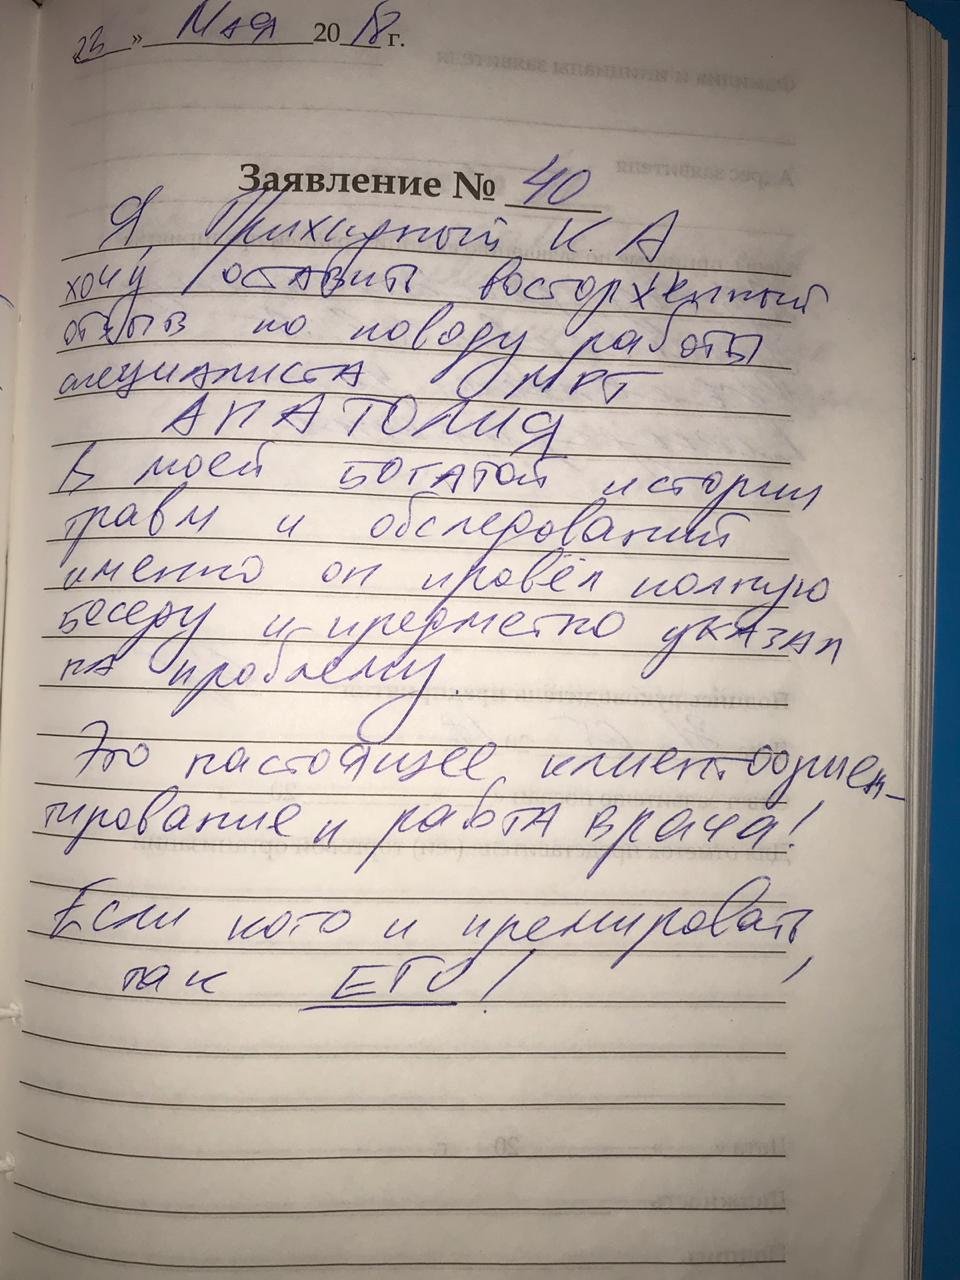 23 » Мая 2018 г.
Заявление № 40
Я, Прихидный К. А
хочу оставить восторженный
отзыв по поводу работы
специалиста МРТ
АНАТОЛИЯ
В моей БОГАТОЙ истории
травм и обследований
именно он провёл полную
беседу и предметно указал
на проблему.
Это настоящее клиентоориен-
тирование и работа врача!
Если кого и премировать,
так ЕГО!